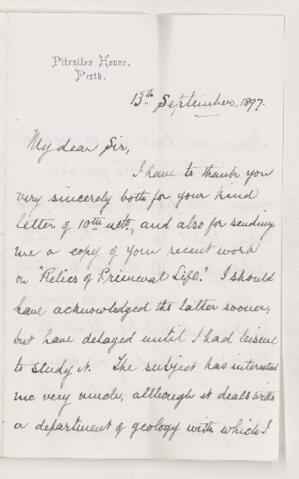 Pitcullen House,
Perth.
13th September, 1897.
My dear Sir,
I have to thank you
very sincerely both for your kind
letter of 10th ulto, and also for sending
me a copy of your recent work
on "Relics of Primeval Life." I should
have acknowledged the latter sooner,
but have delayed until I had leisure
to study it. The subject has interested
me very much, although it deals with
a department of geology with which I